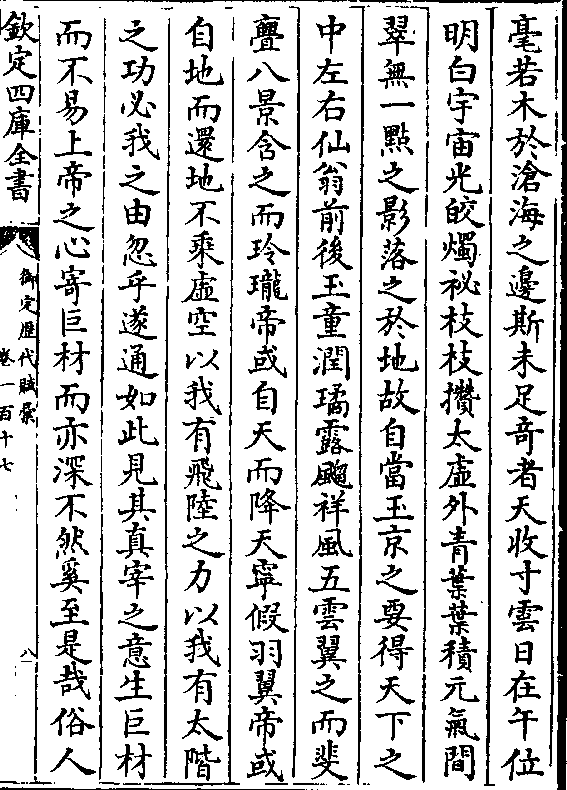 毫若木於滄海之邊斯未足竒者天收寸雲日在午位
明白宇宙光皎燭祕枝枝攢太虛外青葉葉積元氣間
翠無一點之影落之於地故自當玉京之要得天下之
中左右仙翁前後玉童潤璚露飃祥風五雲翼之而斐
亹八景含之而玲瓏帝或自天而降天寧假羽翼帝或
自地而還地不乘虛空以我有飛陸之力以我有太階
之功必我之由忽乎遂通如此見其真宰之意生巨材
而不易上帝之心寄巨材而亦深不然奚至是哉俗人
欽定四庫全書
御定歴代賦彙
卷一百十七
八